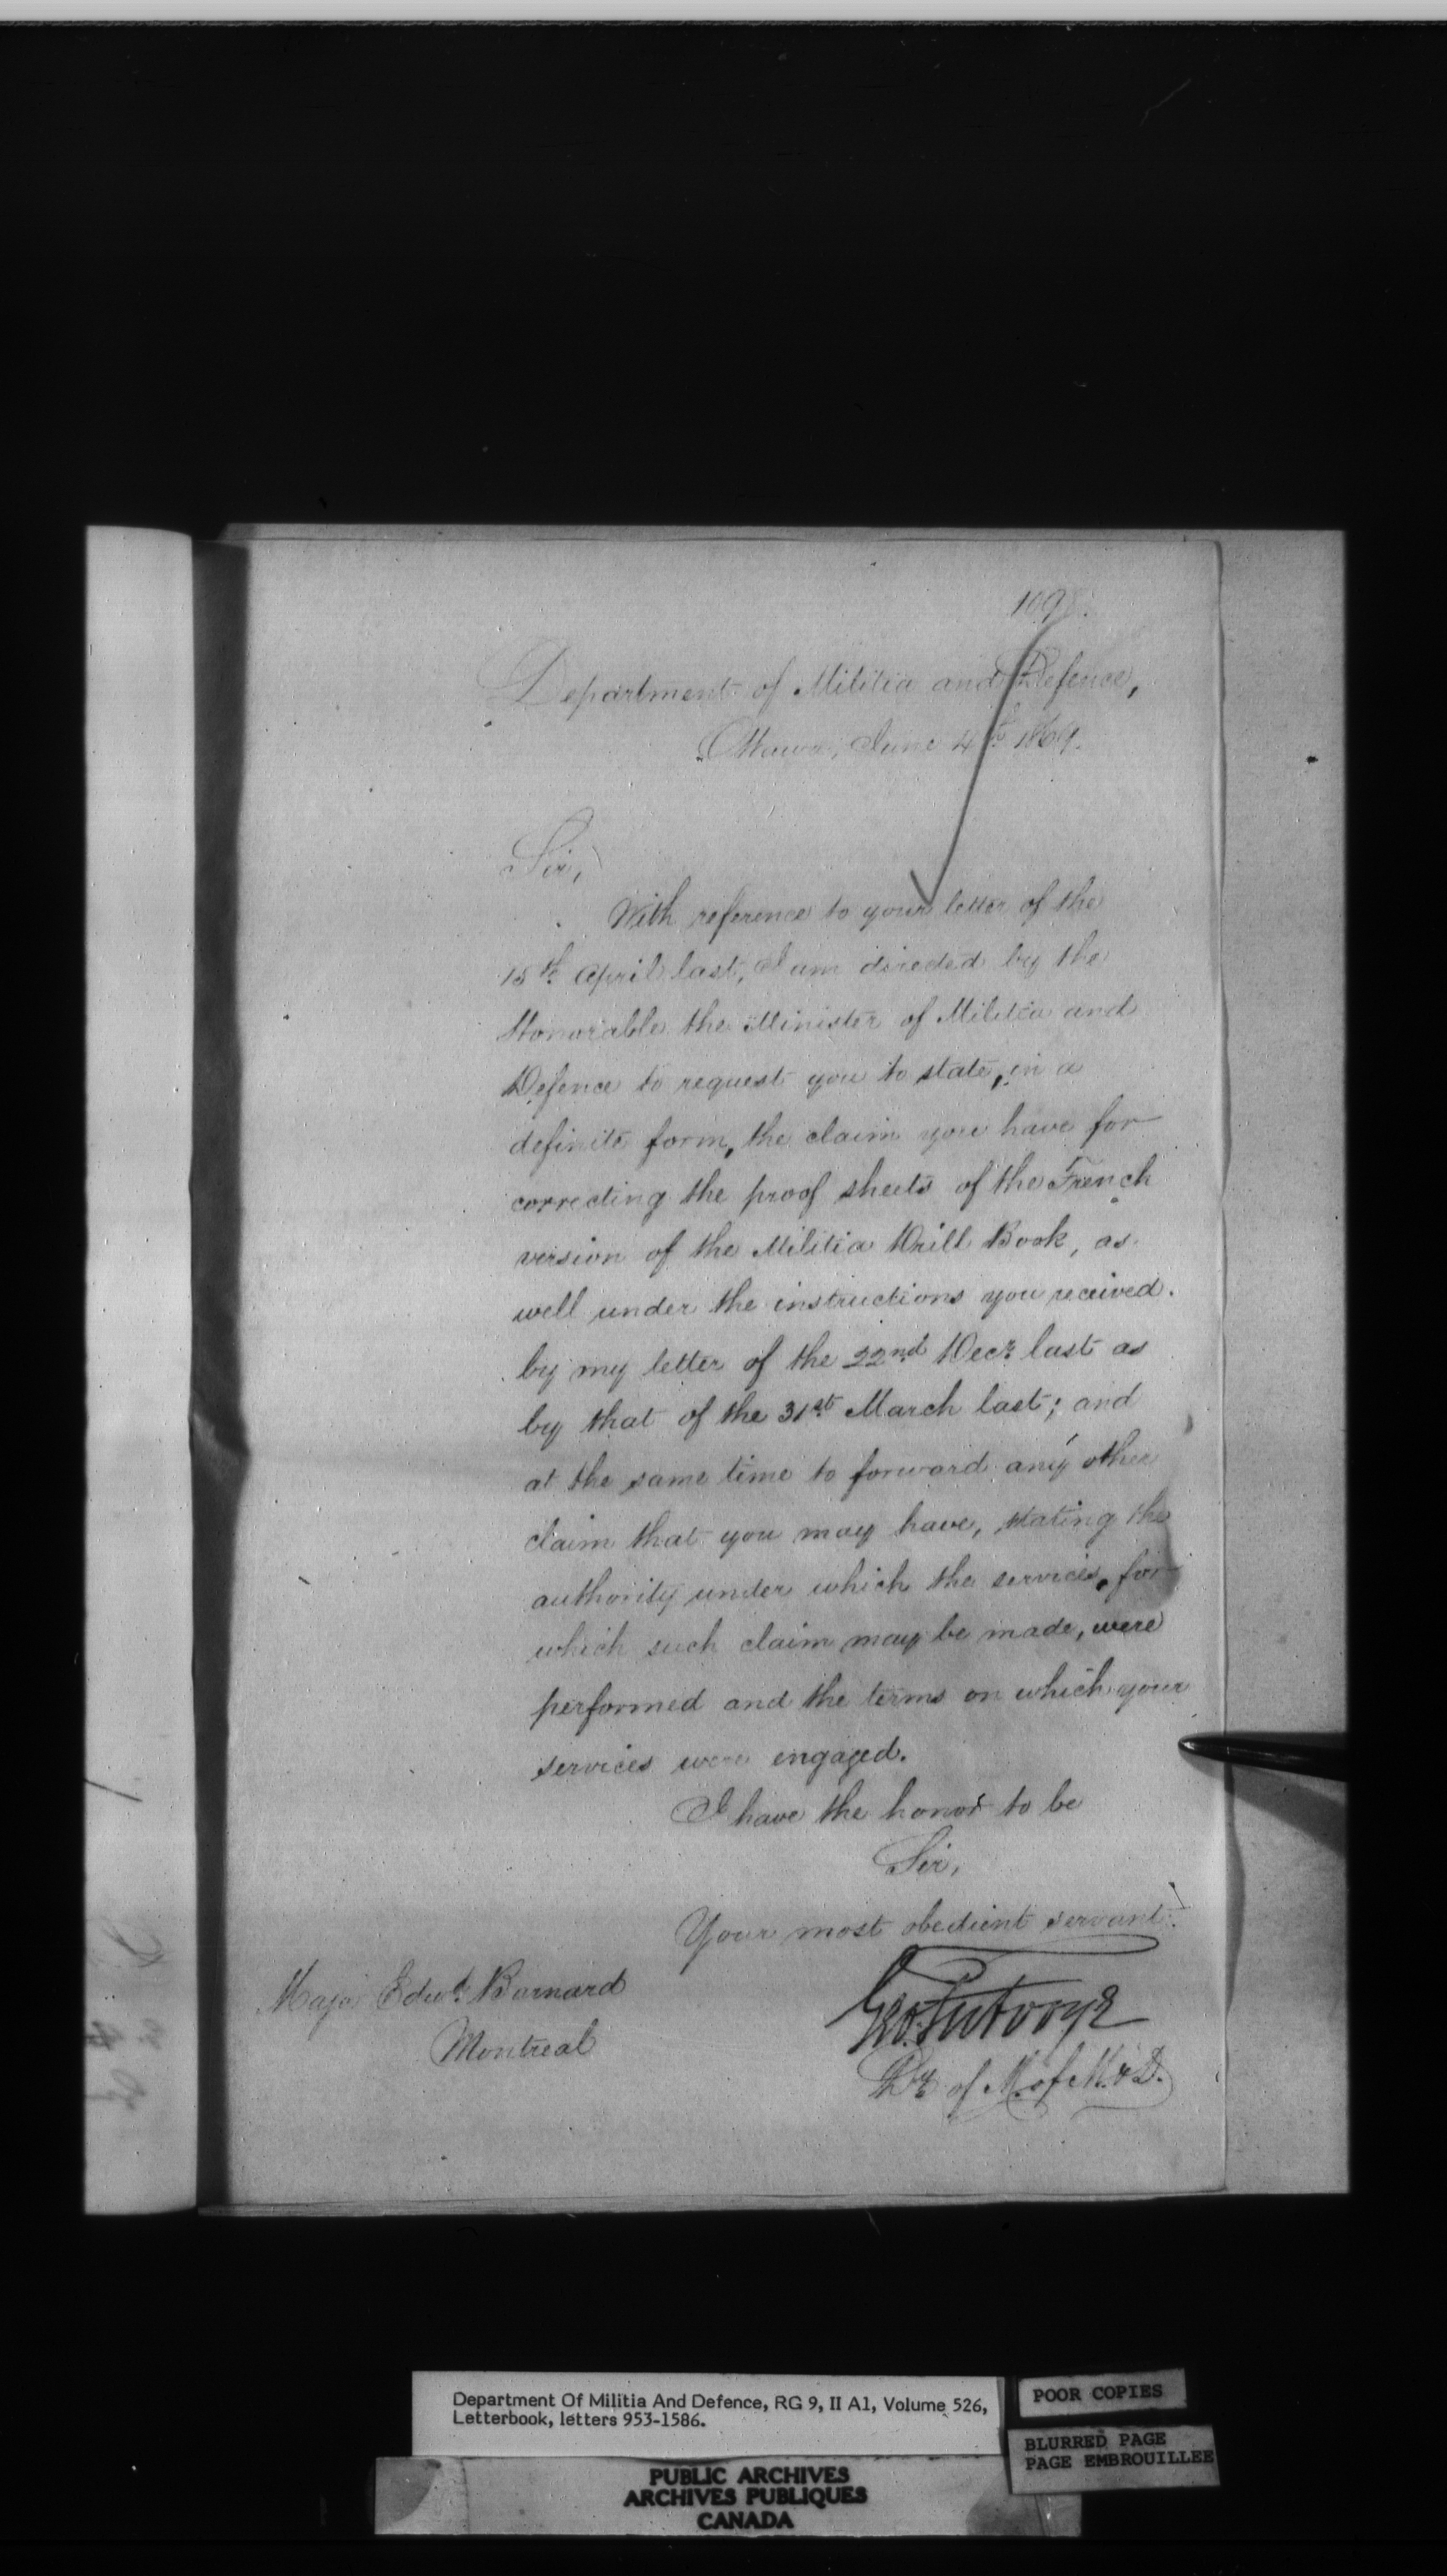 109
Department of Militia and Defence,
Ottawa, June 4th 1869.
Sir,
With reference to your letter of the
15th April last, I am directed by the
Honorable the Minister of Militia and
Defence to request you to state, in a
definite form, the claim you have for
correcting the proof sheets of the French
version of the Militia Drill Book, as
well under the instructions you received
by my letter of the 22nd Decr. last as
by that of the 31st March last; and
at the same time to forward any other
claim that you may have, stating the
authority under which the services, for
which such claim may be made, were
performed and the terms on which your
services were engaged.
I have the honor to be
Sir,
Your most obedient servant.
Geo. Futvoye
Dy. of M. of M. & D.
Major Edwd. Barnard
Montreal
Department Of Militia And Defence, RG 9, II A1, Volume 526,
Letterbook, letters 953-1586.
POOR COPIES
BLURRED PAGE
PAGE EMBROUILLEE
PUBLIC ARCHIVES
ARCHIVES PUBLIQUES
CANADA